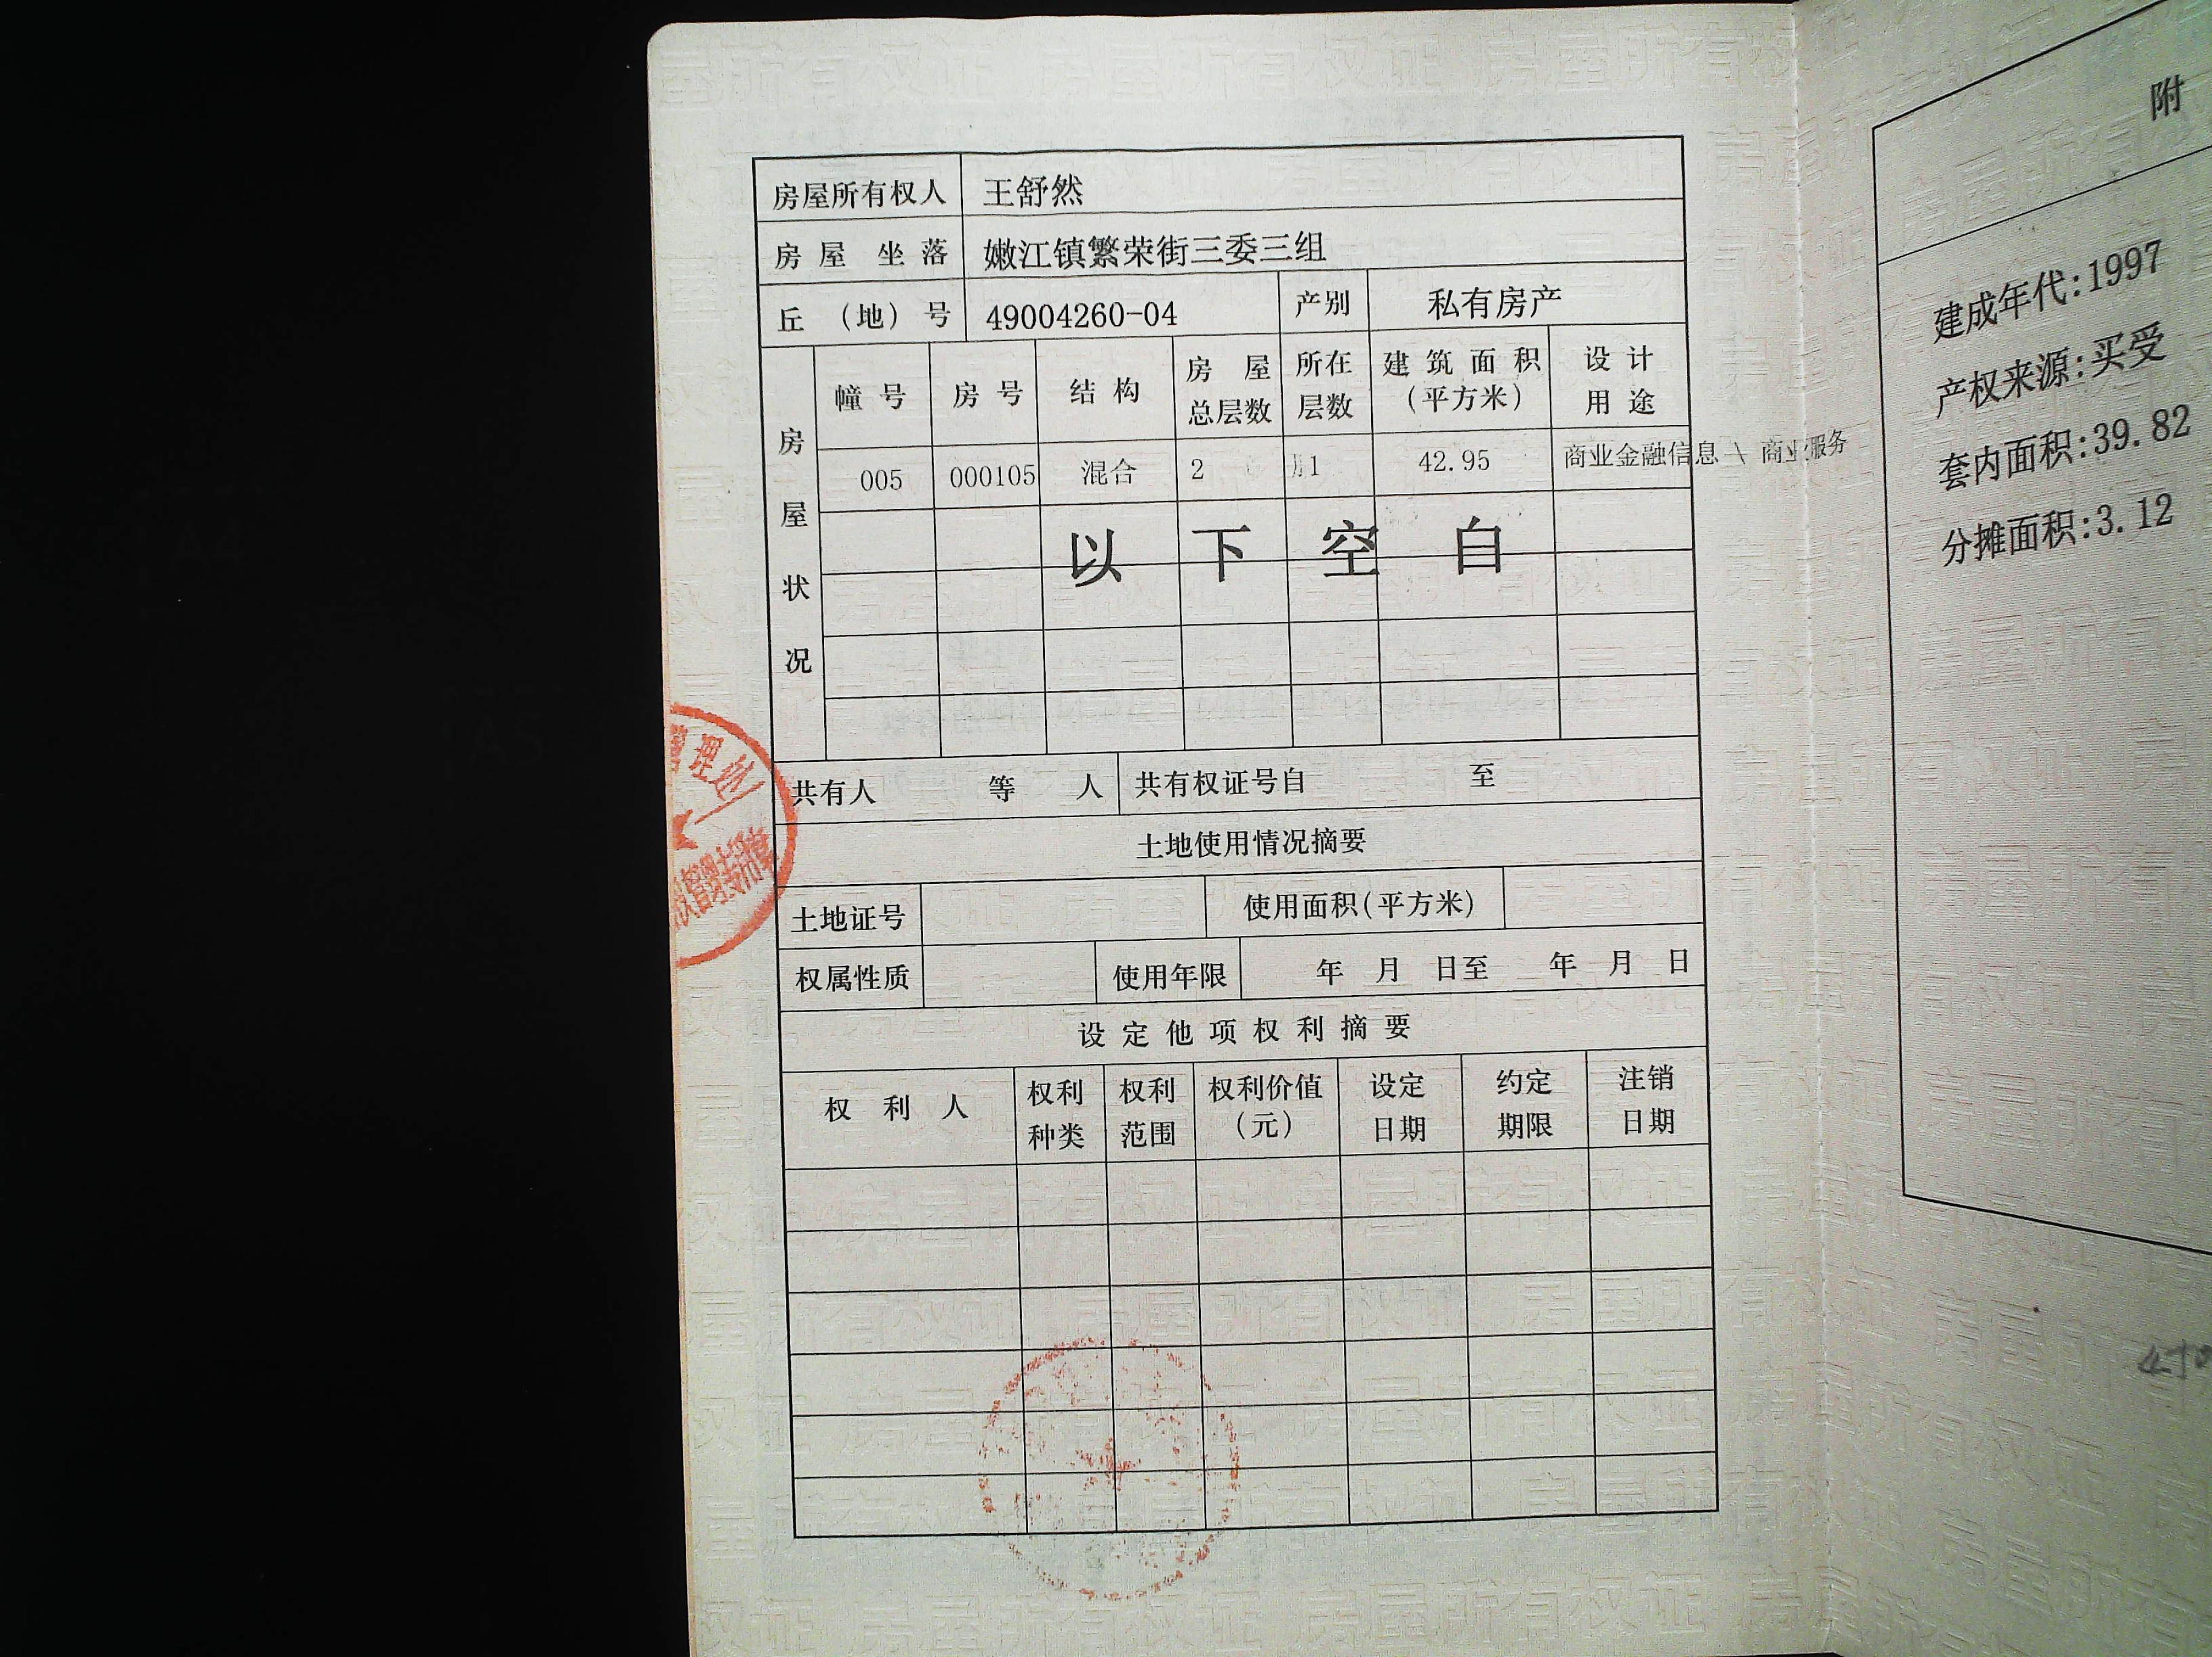 房屋所有权人 王舒然
房屋坐落 嫩江镇繁荣街三委三组
丘（地）号 49004260-04 产别 私有房产
房屋状况
幢号 房号 结构 房屋总层数 所在层数 建筑面积（平方米） 设计用途
005 000105 混合 2 1 42.95 商业金融信息 \ 商业服务
以下空白
共有人 等 人 共有权证号自 至
土地使用情况摘要
土地证号 使用面积(平方米)
权属性质 使用年限 年 月 日至 年 月 日
设定他项权利摘要
权利人 权利种类 权利范围 权利价值（元） 设定日期 约定期限 注销日期
理处
附
建成年代:1997
产权来源:买受
套内面积:39.82
分摊面积:3.12